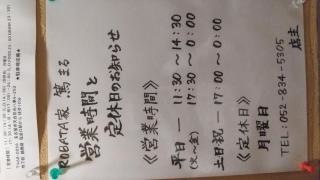 ROBATA家 篤まる
営業時間と
定休日のお知らせ
《営業時間》
平日 ― 11:30〜14:30
(火〜金) 17:30〜0:00
土日祝 ― 17:00〜0:00
《定休日》
月曜日
TEL:052-834-5305
店主